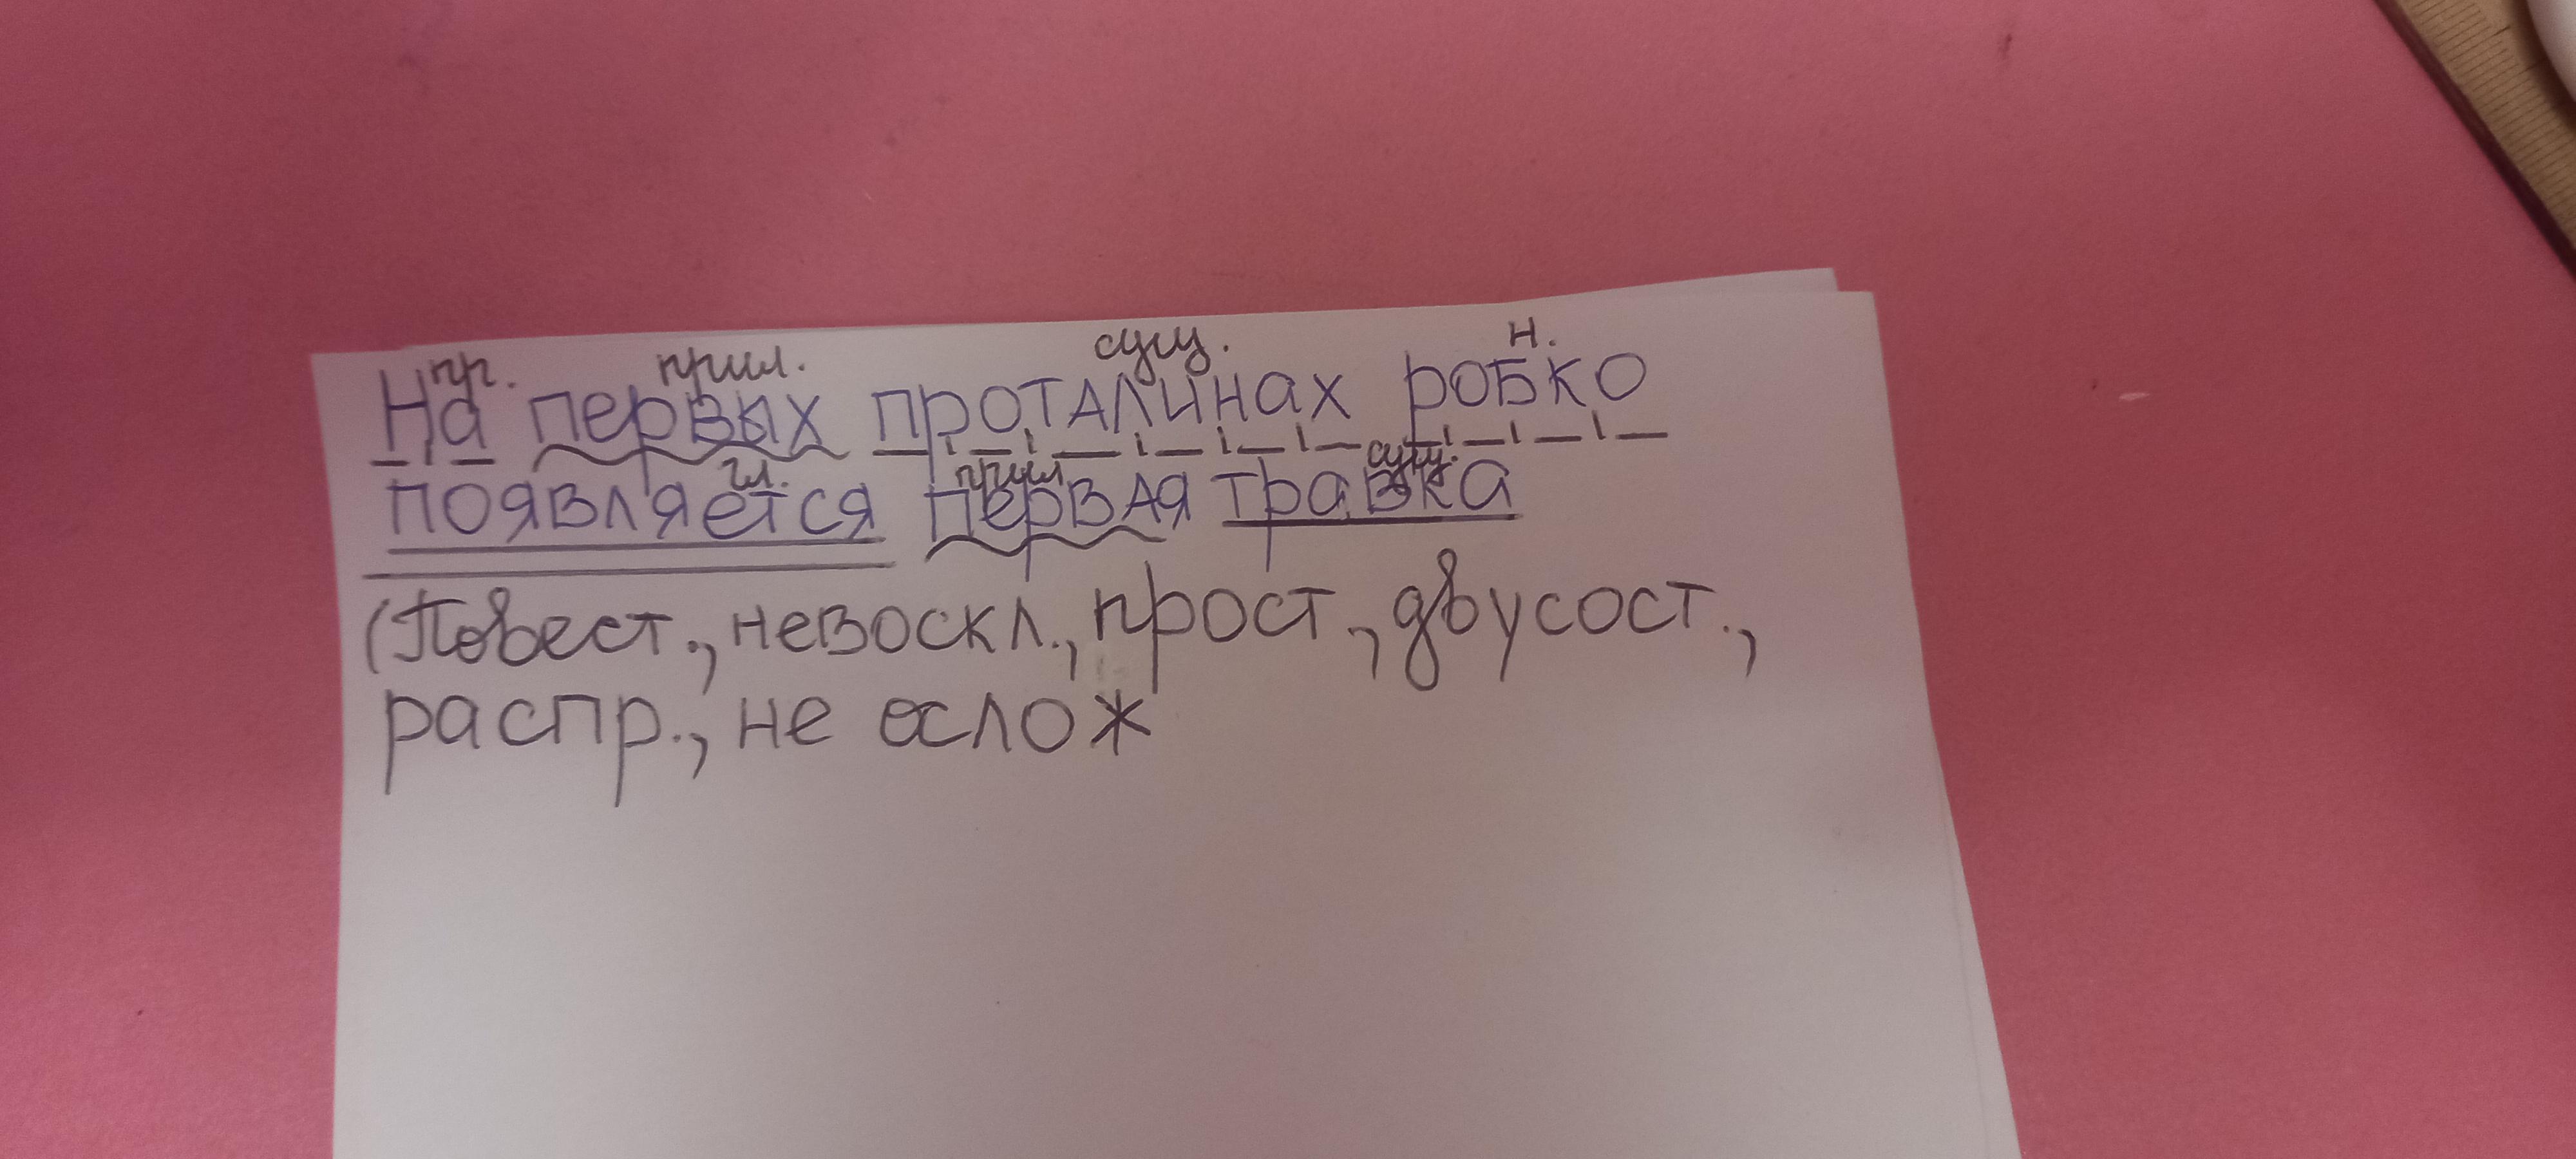 пр. прил. сущ. н.
На первых проталинах робко
гл. прил сущ.
появляется первая травка
(Повест., невоскл., прост, двусост.,
распр., не ослож